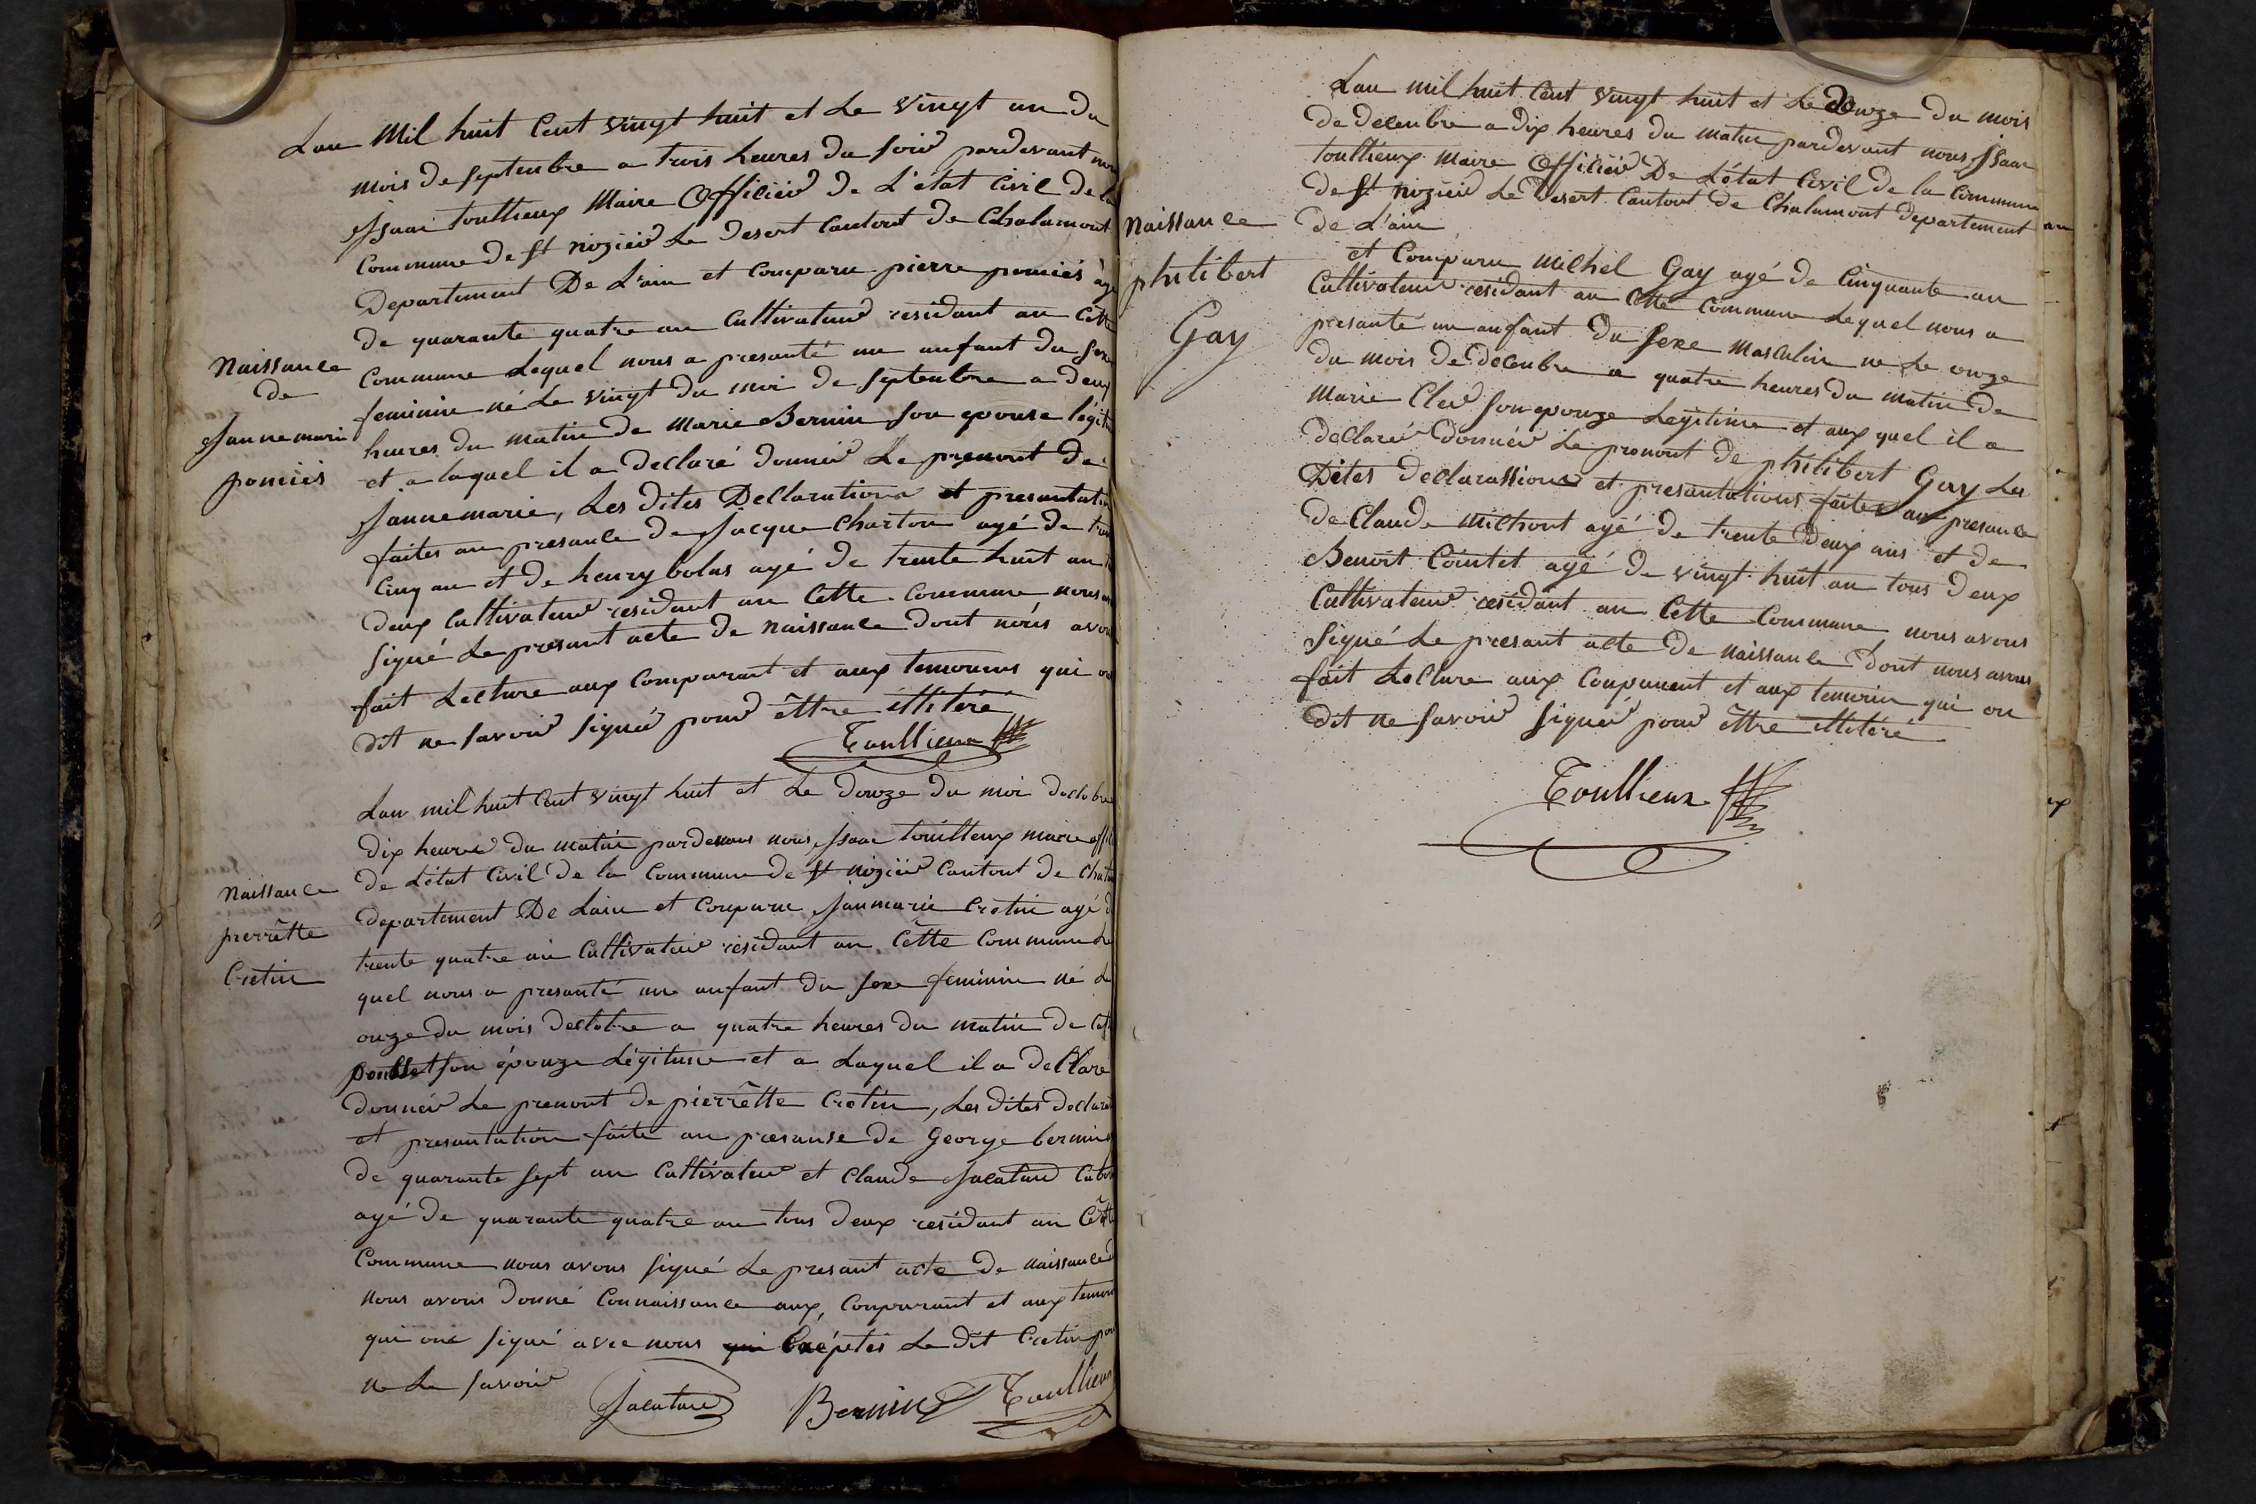 Lan Mil huit Cent vingt huit et Le vingt un du
mois de septenbre a trois heures du soir pardevant
Isaac toullieux Maire Officiér de L'état Civil de la
Commune de St nizier Le desert Cantont de Chalamont
Departement De L'ain et Comparu pierre poncié
de quarante quatre an Cultivateur residant an Cette
Naissance
de
Jannemarie
poncié
Commune Lequel nous a presanté un anfant du sexe
feminin né Le vingt du moi de septenbre a deux
heures du matin de Marie Bernin son epouse
et a laquel il a declaré donnér Le prenont de
Jannemarie, Les dites Declarations et
faites an presance de Jacque Charton agé de
Cinq an et de henry bolas agé de trente huit an
deux Cultivateur residant an Cette Commune nous
signé Le presant acte de naissance dont nous
fait Lecture aux Comparant et aux temouins qui
dit ne savoir signér pour êttre illitéré
Toullieux
Lan mil huit Cent vingt huit et Le douze du moi doctobre
dix heures du matin pardevant nous Isaac toullieux maire
Naissance
pierrêtte
Cretin
de L'état Civil de la Commune de St nizier Cantont de
departement De Lain et Conparu Janmarie Cretin agé
trente quatre an Cultivateur residant an Cêtte Commune
quel nous a presanté une anfant du sexe feminin né
onze du mois doctobre a quatre heures du matin de
son épouze Légitime et a Laquel il a declaré
donnér Le prenont de pierrêtte Cretin, Les dites
et presantation faite an presanse de George bernin
de quarante sept an Cultivateur et Claude Jacature
agé de quarante quatre an tous deux residant an Cêtte
Commune nous avons signé Le presant acte de naissance
Nous avons donné Connaissance aux Conparant et aux
qui ont signé avec nous Le dit Cretin
ne Le savoir
Jacature Bernin Toullieux
Lan mil huit Cent vingt huit et Le douze du mois
de decenbre a dix heures du matin pardevant nous Isaac
toullieux Maire Officiér De L'état Civil de la Commune
de St nizier Le Desert Cantont de Chalamont departement
de L'ain
Naissance
philibert
Gay
et Comparu Michel Gay agé de Cinquante an
Cultivateur residant an Cette Commune Lequel nous a
presanté un anfant du sexe Masculin ne Le onze
du mois de decenbre a quatre heures du matin de
Marie Cler son epouze Legitime et aux quel il a
declaré donnér Le pronont de philibert Gay Les
Dites declarassions et presantations faites an presance
de Claude Michont agé de trente deux ans et de
Benoit Cointet agé de vingt huit an tous deux
Cultivateur residant an Cette Commune nous avons
signé Le presant acte de naissance dont nous avons
fait Lecture aux Conparent et aux temoin qui on
dit ne savoir signér pour êttre illitéré
Toullieux